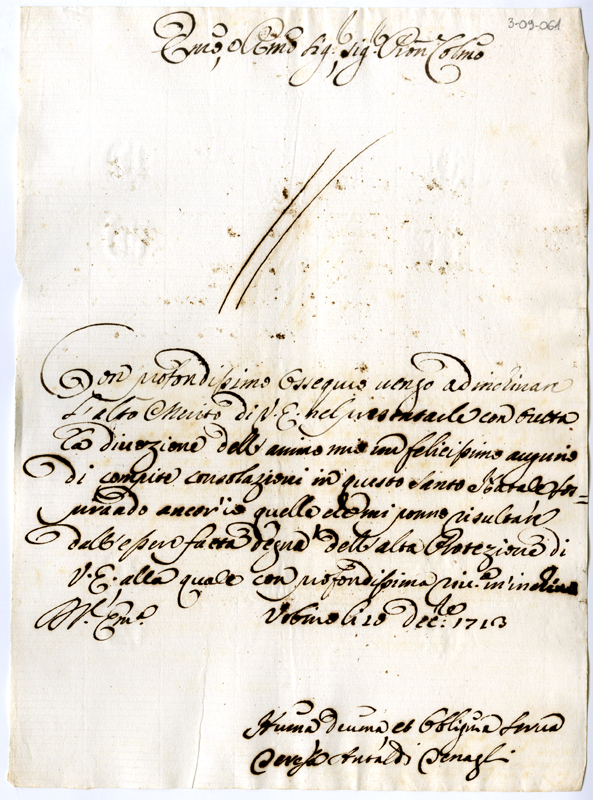 3-09-061
Emo, e Rmo Sig.r, Sig.r Pron Colmo
Con profondissimo Ossequio vengo ad inclinare
l'alto Merito di V. E. nel presentarle con tutta
la divozione dell'animo mio un felicissimo augurio
di compite consolazioni in questo Santo Natale
ancor'io quelle che mi ponno risultare
dall'esser fatta degna dell'alta Protezione di
V. E. alla quale con profondissima riu.a m'inclino
D. V. Em.a Urbino li 10 Dec.re 1713
Huma Deuma, et Obligma Serva
Teresa Antaldi Benagli